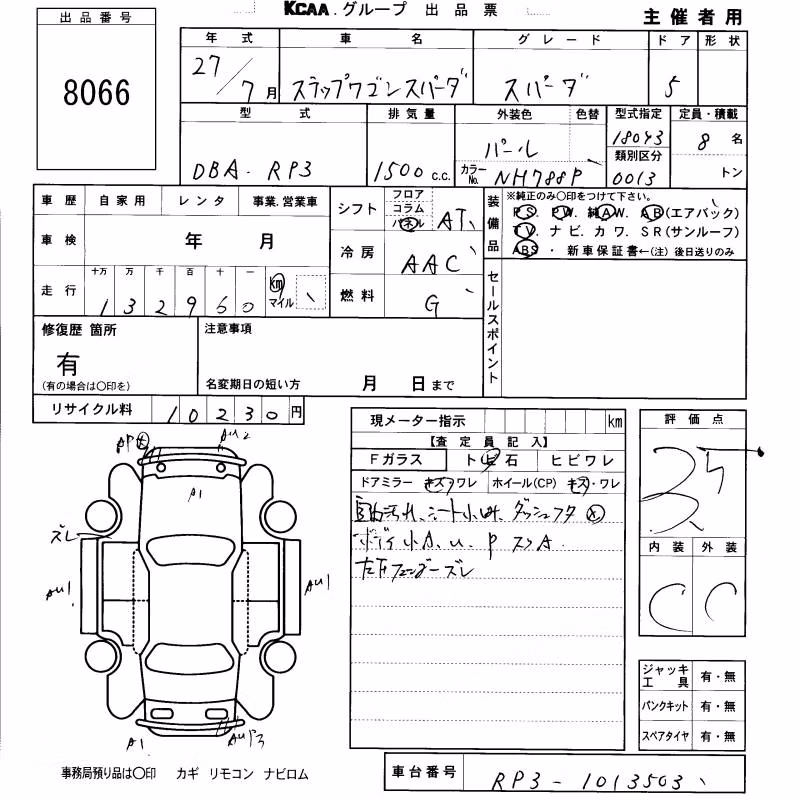 出品番号
KCAA.グループ 出品票
主催者用
8066
年式 車名 グレード ドア 形状
27/7月 ステップワゴンスパーダ スパーダ 5
型式 排気量 外装色 色替 型式指定 定員・積載
DBA-RP3 1500c.c. パール 18043 8名
カラーNo. NH788P 類別区分 0013 トン
車歴 自家用 レンタ 事業.営業車
シフト フロア コラム パネル AT
装備品 ※純正のみ○印をつけて下さい。
PS. PW. 純AW. AB(エアバック)
TV. ナビ. カワ. SR(サンルーフ)
ABS ・ 新車保証書←(注)後日送りのみ
車検 年 月
冷房 AAC
走行 十万 万 千 百 十 一 km マイル
132960
燃料 G
セールスポイント
修復歴 箇所
有
(有の場合は○印を)
注意事項
名変期日の短い方 月 日まで
リサイクル料 10230円
現メーター指示 km
【査定員記入】
Fガラス トビ石 ヒビワレ
ドアミラー キズ・ワレ ホイール(CP) キズ・ワレ
ボディ小A.u.P スリA.
左Fフェンダーズレ
評価点
内装 外装
C C
A1
ズレ
AU1 AU1
A1
ジャッキ工具 有・無
パンクキット 有・無
スペアタイヤ 有・無
事務局預り品は○印 カギ リモコン ナビロム
車台番号 RP3-1013503